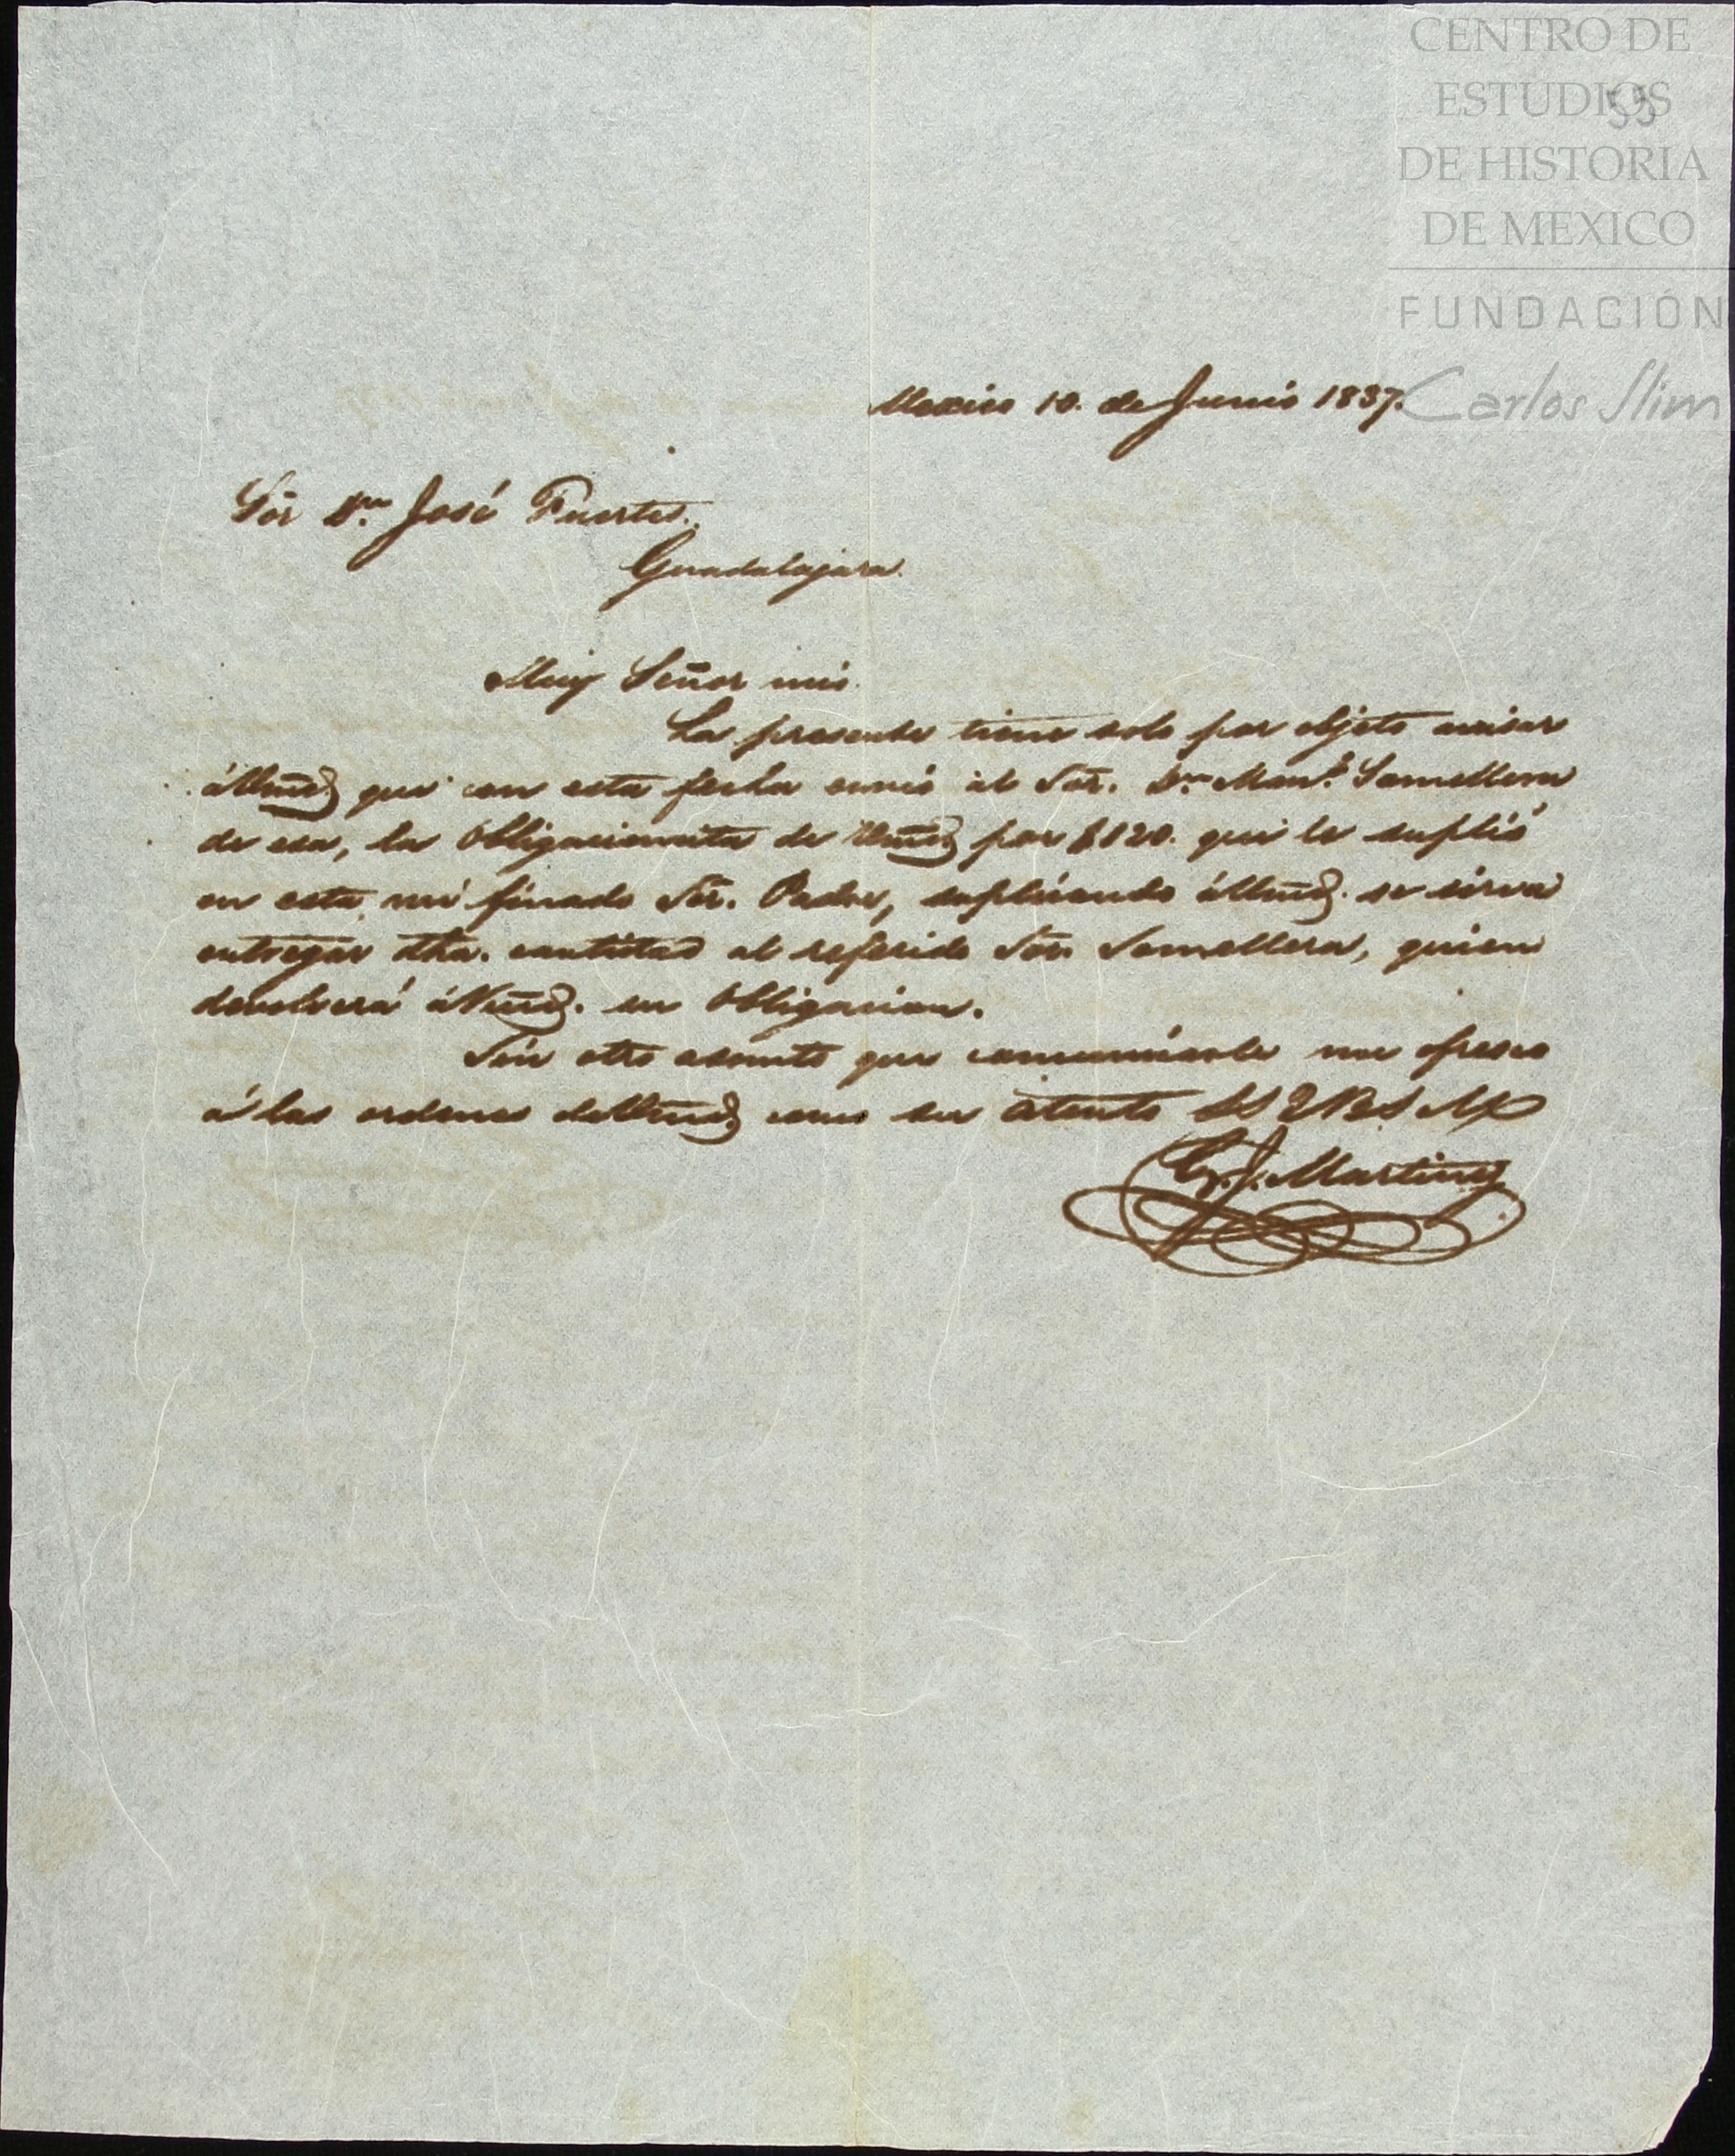 CENTRO DE
ESTUDIOS
55
DE HISTORIA
DE MEXICO
FUNDACIÓN
Carlos Slim
Mexico 10. de Junio 1837.
Sōr Dn. José Fuertes.
Guadalajara.
Muy Señor mio.
La presente tiene solo por objeto avisar
á Vmd que con esta fecha envio al Sōr. Dn. Manl. Somellera
de esa, la Obligacioncita de Vmd por $120. que le suplió
en esta mi finado Sōr. Padre, suplicando á Vmd. se sirva
entregar dha. cantidad al referido Sōr. Somellera, quien
devolverá á Vmd. su Obligacion.
Sin otro asunto que comunicarle me ofresco
á las ordenes de Vmd, como su atento SSQBSM
G. J. Martinez